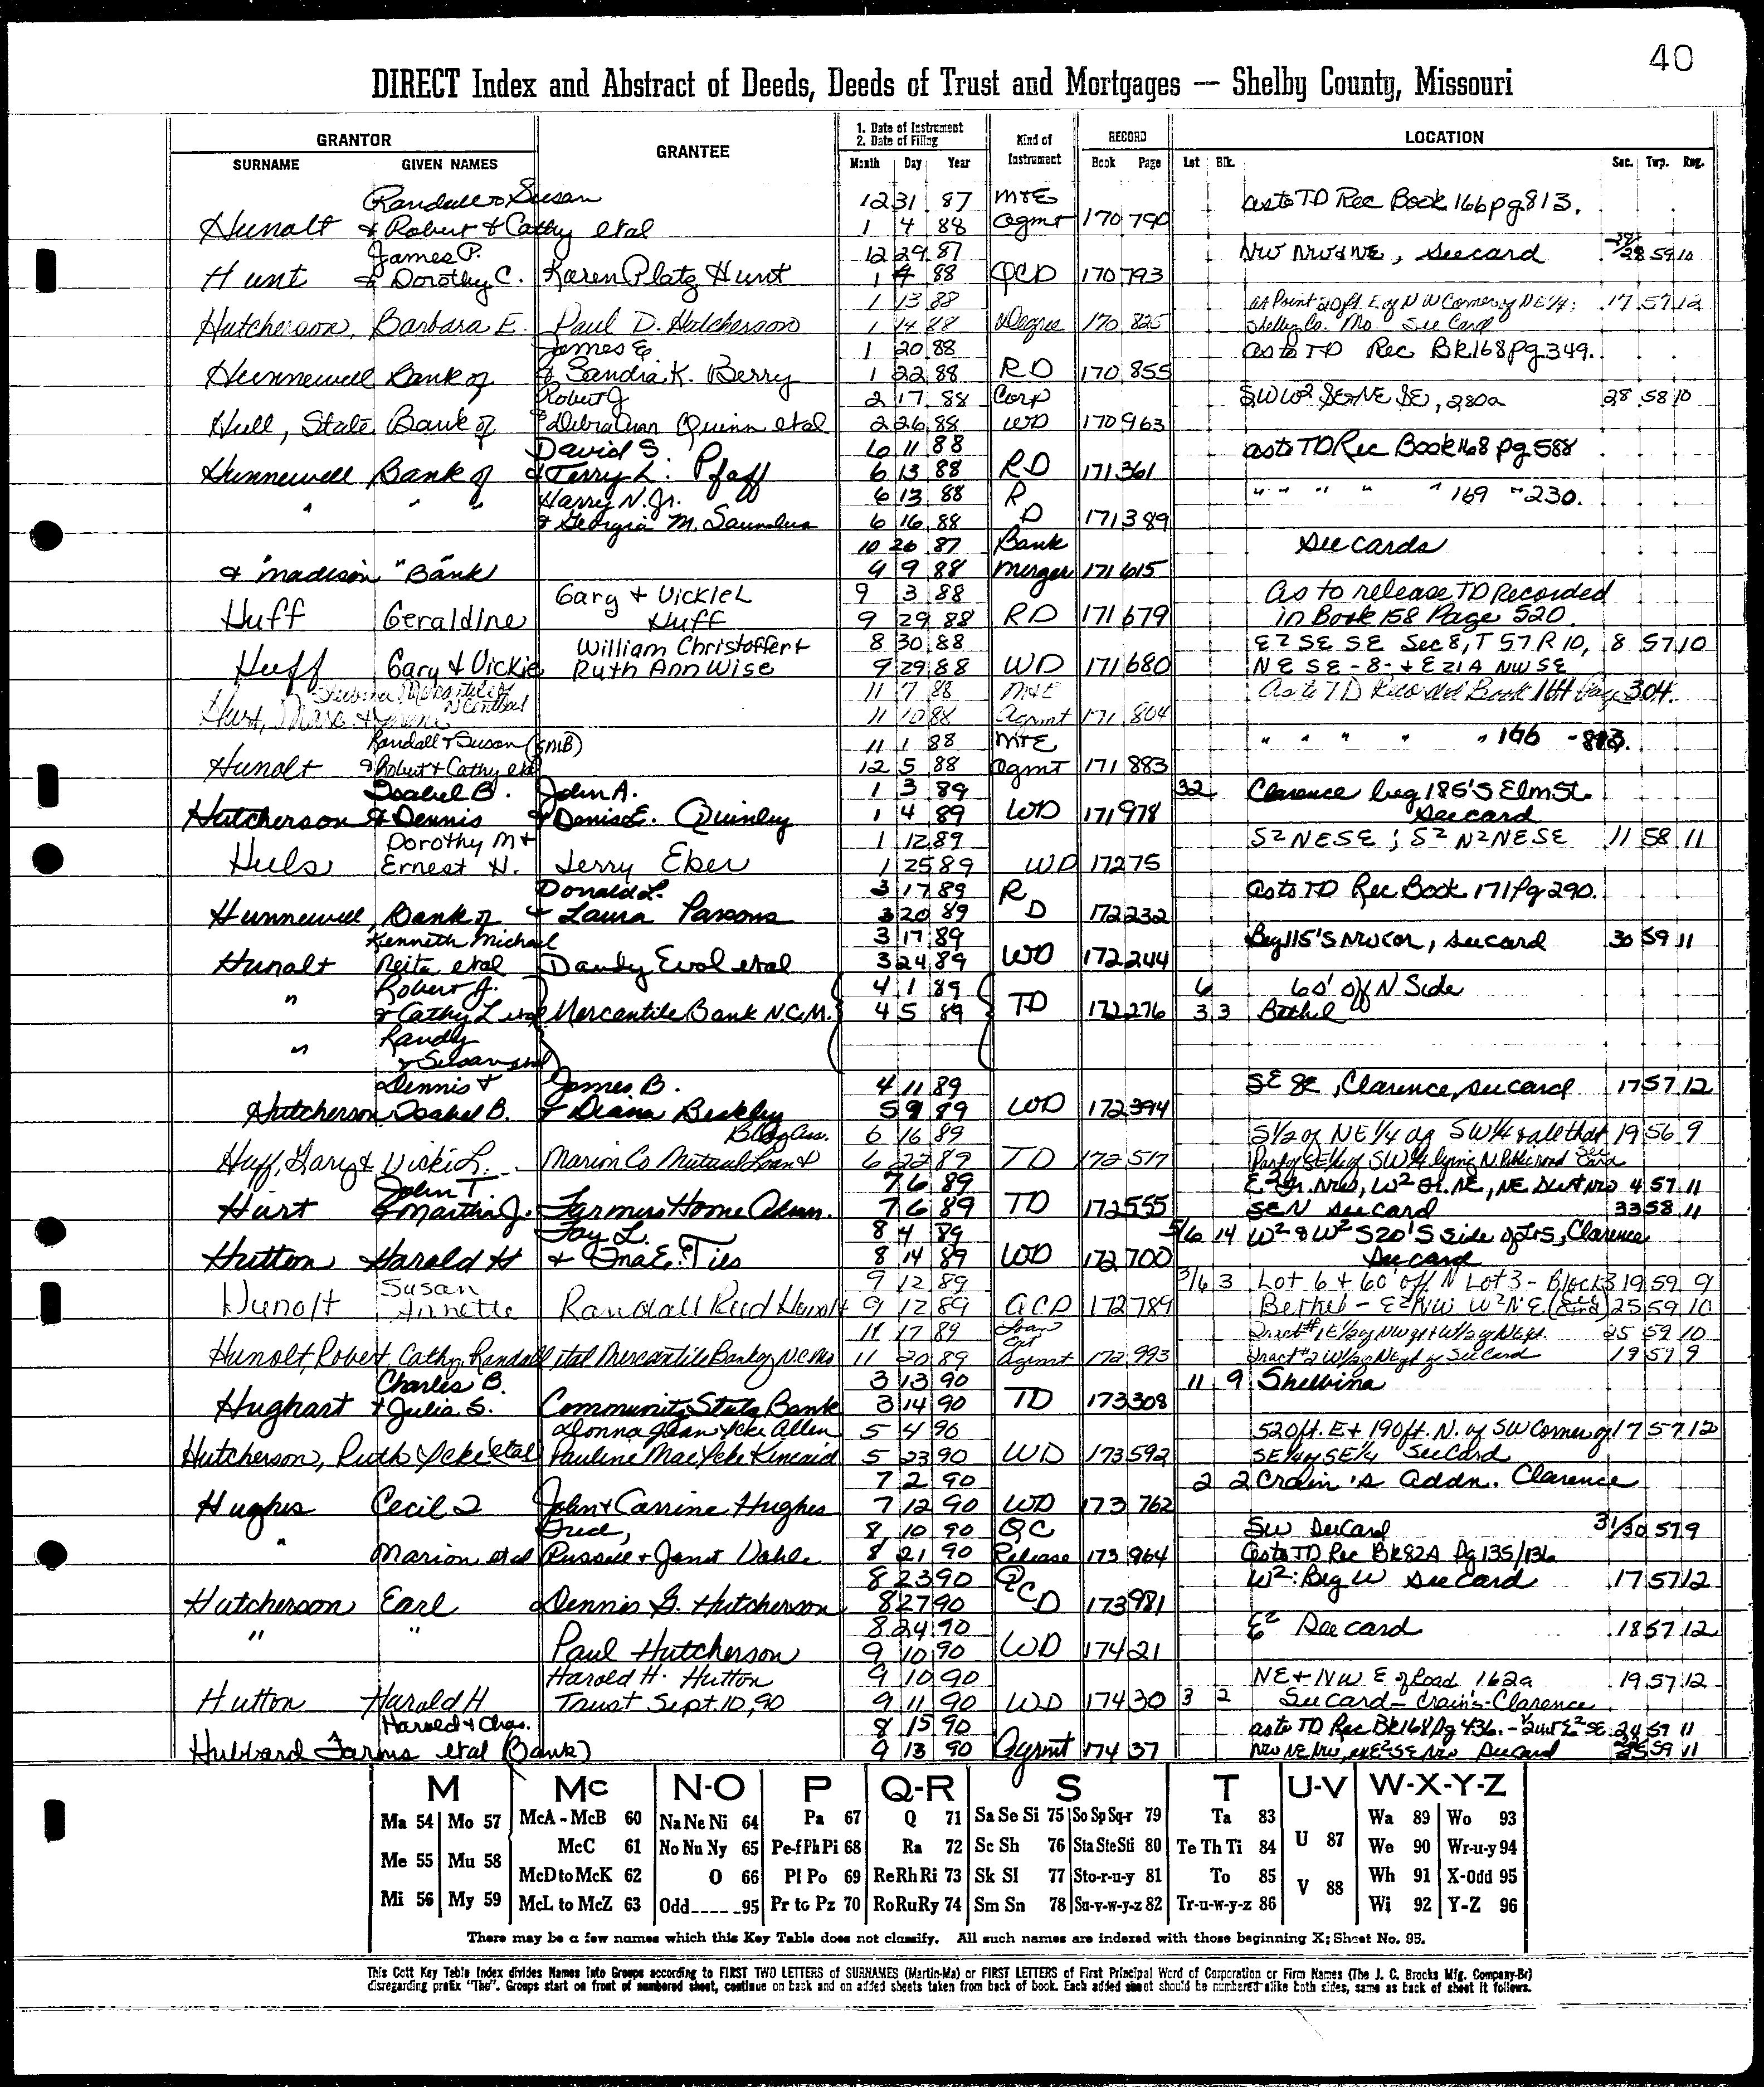 40
DIRECT Index and Abstract of Deeds, Deeds of Trust and Mortgages — Shelby County, Missouri
GRANTOR GRANTEE 1. Date of Instrument 2. Date of Filing Kind of Instrument RECORD LOCATION
SURNAME GIVEN NAMES Month Day Year Book Page Lot Blk. Sec. Twp. Rng.
Randall & Susan 12 31 87 M&E as to TD Rec Book 166 pg 813.
Hunolt & Robert & Cathy etal 1 4 88 Agmt 170 790
James P. 12 29 87 NW NW & NE, see card 28 59 10
Hunt & Dorothy C. Karen Platz Hunt 1 4 88 QCD 170 793
1 13 88 at Point 20 ft. E of NW Corner of NE 1/4; 17 57 12
Hutcherson, Barbara E. Paul D. Hutcherson 1 14 88 Degree 170 825 Shelby Co. Mo. - See Card
James E. 1 20 88 as to TD Rec Bk 168 pg 349.
Hunnewell Bank of & Sandra K. Berry 1 22 88 RD 170 855
Robert J 2 17 88 Corp SW W² SE & NE SE, 280a 28 58 10
Hull, State Bank of & Debra Ann Quinn etal 2 26 88 WD 170 963
David S. 6 11 88 as to TD Rec Book 168 pg 588
Hunnewell Bank of & Terry L. Pfaff 6 13 88 RD 171 361
Harry N. Jr. 6 13 88 R " " " " " 169 " 230.
" " " & Georgia M. Saunders 6 16 88 D 171 389
10 26 87 Bank See cards
& Madison " Bank " 9 9 88 Merger 171 615
Gary & Vickie L 9 3 88 As to release TD Recorded
Huff Geraldine Huff 9 29 88 RD 171 679 in Book 158 Page 520.
William Christoffer & 8 30 88 E2 SE SE Sec 8, T 57 R 10, 8 57 10
Huff Gary & Vickie Ruth Ann Wise 9 29 88 WD 171 680 NE SE - 8 - & E 21A NW SE
11 7 88 M&E As to TD Recorded Book 164 Page 304.
Hurt, 11 10 88 Agmt 171 804
Randall & Susan (SMB) 11 1 88 M&E " " " " " 166 - 813.
Hunolt & Robert & Cathy etal 12 5 88 Agmt 171 883
Isabel B. John A. 1 3 89 32 Clarence beg 185' S Elm St.
Hutcherson & Dennis & Denise E. Quinley 1 4 89 WD 171 978 See card
Dorothy M & 1 12 89 S² NE SE; S² N² NE SE 11 58 11
Huls Ernest H. Jerry Eber 1 25 89 WD 172 75
Donald L. 3 17 89 R as to TD Rec Book 171 Pg 290.
Hunnewell, Bank of & Laura Parsons 3 20 89 D 172 232
Kenneth Michael 3 17 89 Beg 115' S NW cor, see card 30 59 11
Hunolt Neita etal Dandy Evol etal 3 24 89 WD 172 244
Robert J. 4 1 89 6 60' off N Side
" & Cathy L etal Mercantile Bank N.C.M. 4 5 89 TD 172 276 3 3 Bethel
Randy
" & Susan etal
Dennis & James B. 4 11 89 SE SE, Clarence, see card 17 57 12
Hutcherson Isabel B. & Diana Beckley 5 9 89 WD 172 394
Bldg Ass. 6 16 89 S 1/2 of NE 1/4 of SW 1/4 & all that 19 56 9
Huff, Gary & Vickie L. Marion Co Mutual Loan & 6 22 89 TD 172 517 Part of SE 1/4 of SW 1/4 lying N Public road See Card
John T. 7 6 89 E² fr. NW, W² fr. NE, NE 4 57 11
Hurt & Martha J. Farmers Home Adm. 7 6 89 TD 172 555 SE N see card 33 58 11
Fay L. 8 4 89 5/6 14 W² & W² S 20' S side of L 5, Clarence
Hutton Harold H & Ina E. Ties 8 14 89 WD 172 700 See card
Susan 9 12 89 3/6 3 Lot 6 & 60' off N Lot 3 - Block 3 19 59 9
Hunolt Annette Randall Reed Hunolt 9 12 89 QCD 172 789 Bethel - E² NW W² NE (See Card) 25 59 10
11 17 89 Loan Tract #1 E 1/2 of NW qr & W 1/2 of NE qr. 25 59 10
Hunolt, Robert Cathy, Randall etal Mercantile Bank of N.C. Mo 11 20 89 Agmnt 172 993 Tract #2 W 1/2 of NE qr of See Card 19 59 9
Charles B. 3 13 90 11 9 Shelbina
Hughart & Julia S. Community State Bank 3 14 90 TD 173 308
Donna Jean Ycke Allen 5 4 90 520 ft. E & 190 ft. N. of SW Corner of 17 57 12
Hutcherson, Ruth Ycke etal Pauline Mae Ycke Kincaid 5 23 90 WD 173 592 SE 1/4 of SE 1/4 See Card
7 2 90 2 2 Crain's Addn. Clarence
Hughes Cecil I John & Carrine Hughes 7 12 90 WD 173 762
Fred, 8 10 90 QC SW See Card 31/30 57 9
" Marion etal Russell & Janet Dahle 8 21 90 Release 173 964 as to TD Rec Bk 82A Pg 135/136
8 23 90 Q W²: Beg W See Card 17 57 12
Hutcherson Earl Dennis G. Hutcherson 8 27 90 CD 173 981
8 24 90 E² See card 18 57 12
" " Paul Hutcherson 9 10 90 WD 174 21
Harold H. Hutton 9 10 90 NE & NW E of Road 162a 19 57 12
Hutton Harold H Trust Sept. 10, 90 9 11 90 WD 174 30 3 2 See Card - Crain's - Clarence
Harold & Chas. 8 15 90 as to TD Rec Bk 168 Pg 436. E² SE 24 59 11
Hubbard Farms etal (Bank) 9 13 90 Agrmt 174 37 NW NE NW, E² SE NW See Card 25 59 11
M Mc N-O P Q-R S T U-V W-X-Y-Z
Ma 54 Mo 57 McA - McB 60 Na Ne Ni 64 Pa 67 Q 71 Sa Se Si 75 So Sp Sq-r 79 Ta 83 U 87 Wa 89 Wo 93
Me 55 Mu 58 McC 61 No Nu Ny 65 Pe-f Ph Pi 68 Ra 72 Sc Sh 76 Sta Ste Sti 80 Te Th Ti 84 We 90 Wr-u-y 94
McD to McK 62 O 66 Pl Po 69 Re Rh Ri 73 Sk Sl 77 Sto-r-u-y 81 To 85 V 88 Wh 91 X-Odd 95
Mi 56 My 59 McL to McZ 63 Odd_ _ _ _ _95 Pr to Pz 70 Ro Ru Ry 74 Sm Sn 78 Su-v-w-y-z 82 Tr-u-w-y-z 86 Wi 92 Y-Z 96
There may be a few names which this Key Table does not classify. All such names are indexed with those beginning X; Sheet No. 95.
This Cott Key Table Index divides Names into Groups according to FIRST TWO LETTERS of SURNAMES (Martin-Ma) or FIRST LETTERS of First Principal Word of Corporation or Firm Names (The J. C. Brooks Mfg. Company-Br)
disregarding prefix "The". Groups start on front of numbered sheet, continue on back and on added sheets taken from back of book. Each added sheet should be numbered alike both sides, same as back of sheet it follows.